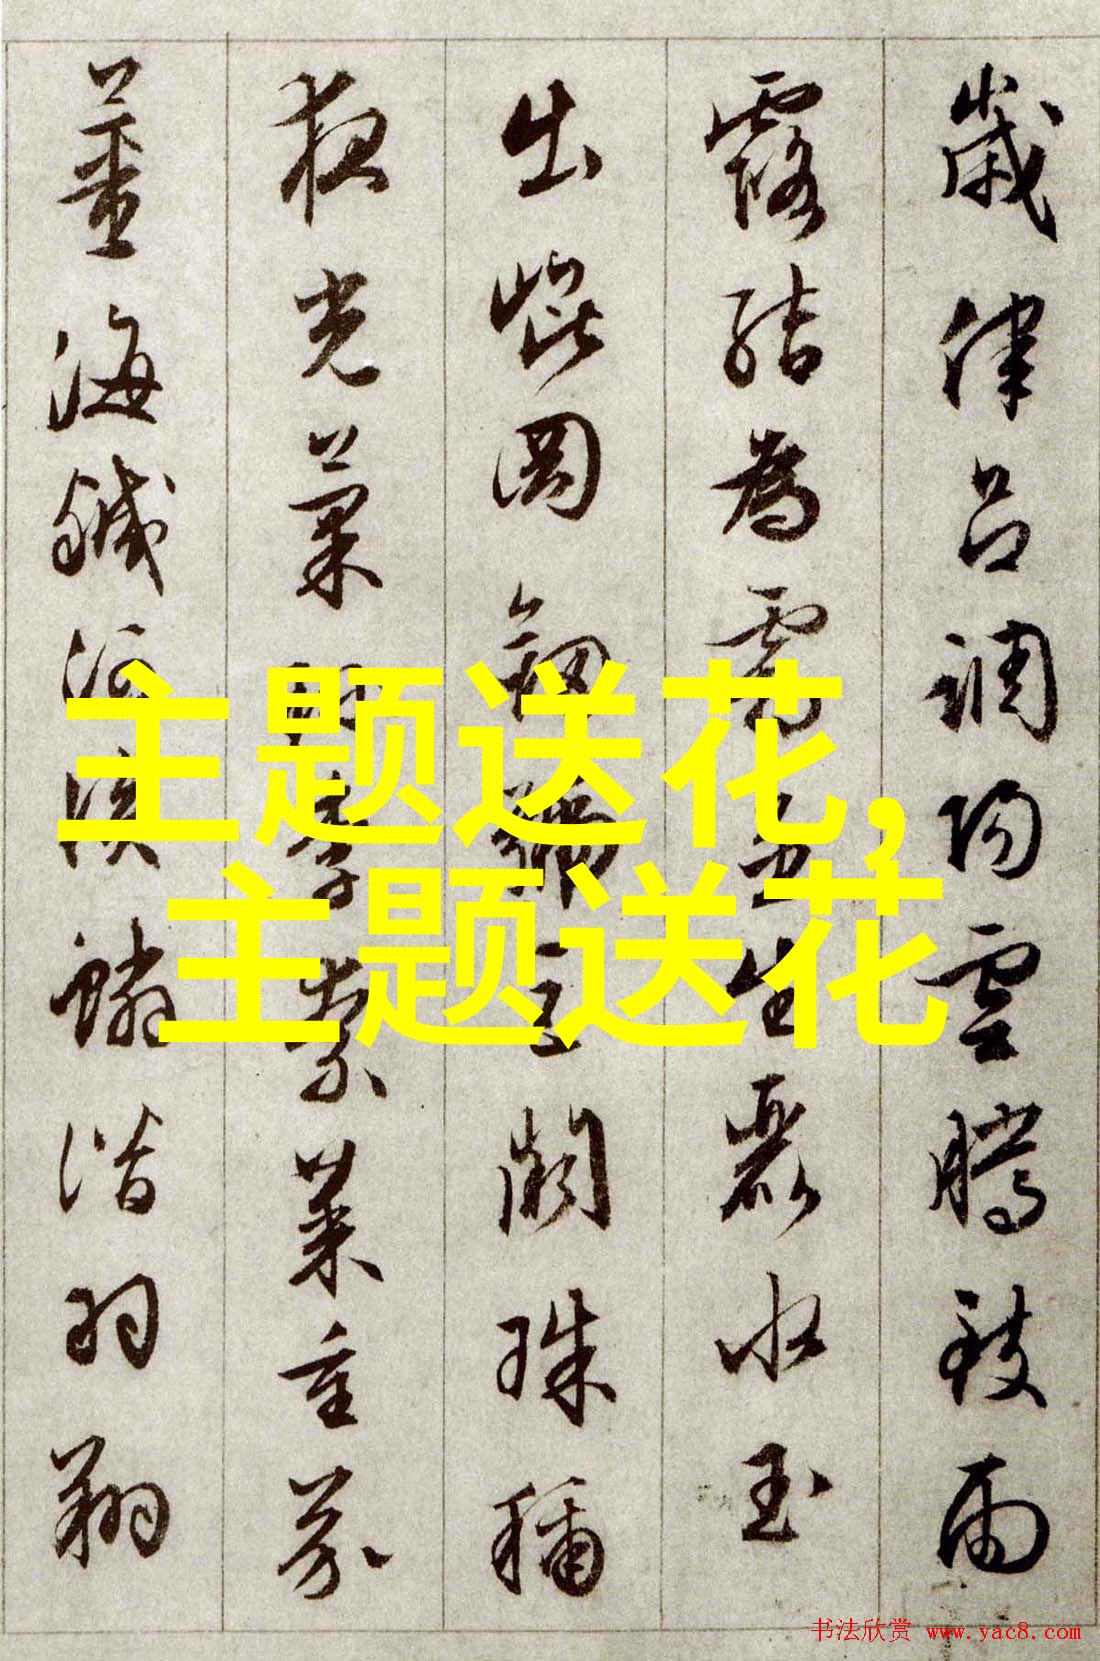 歲律吕調陽雲騰致雨
露結為霜金生麗水玉
出崐岡劍號巨闕珠稱
夜光菓珍李柰菜重芥
薑海鹹河淡鱗潛羽翔
主题送花,
主题送花
书法欣赏 www.yac8.com